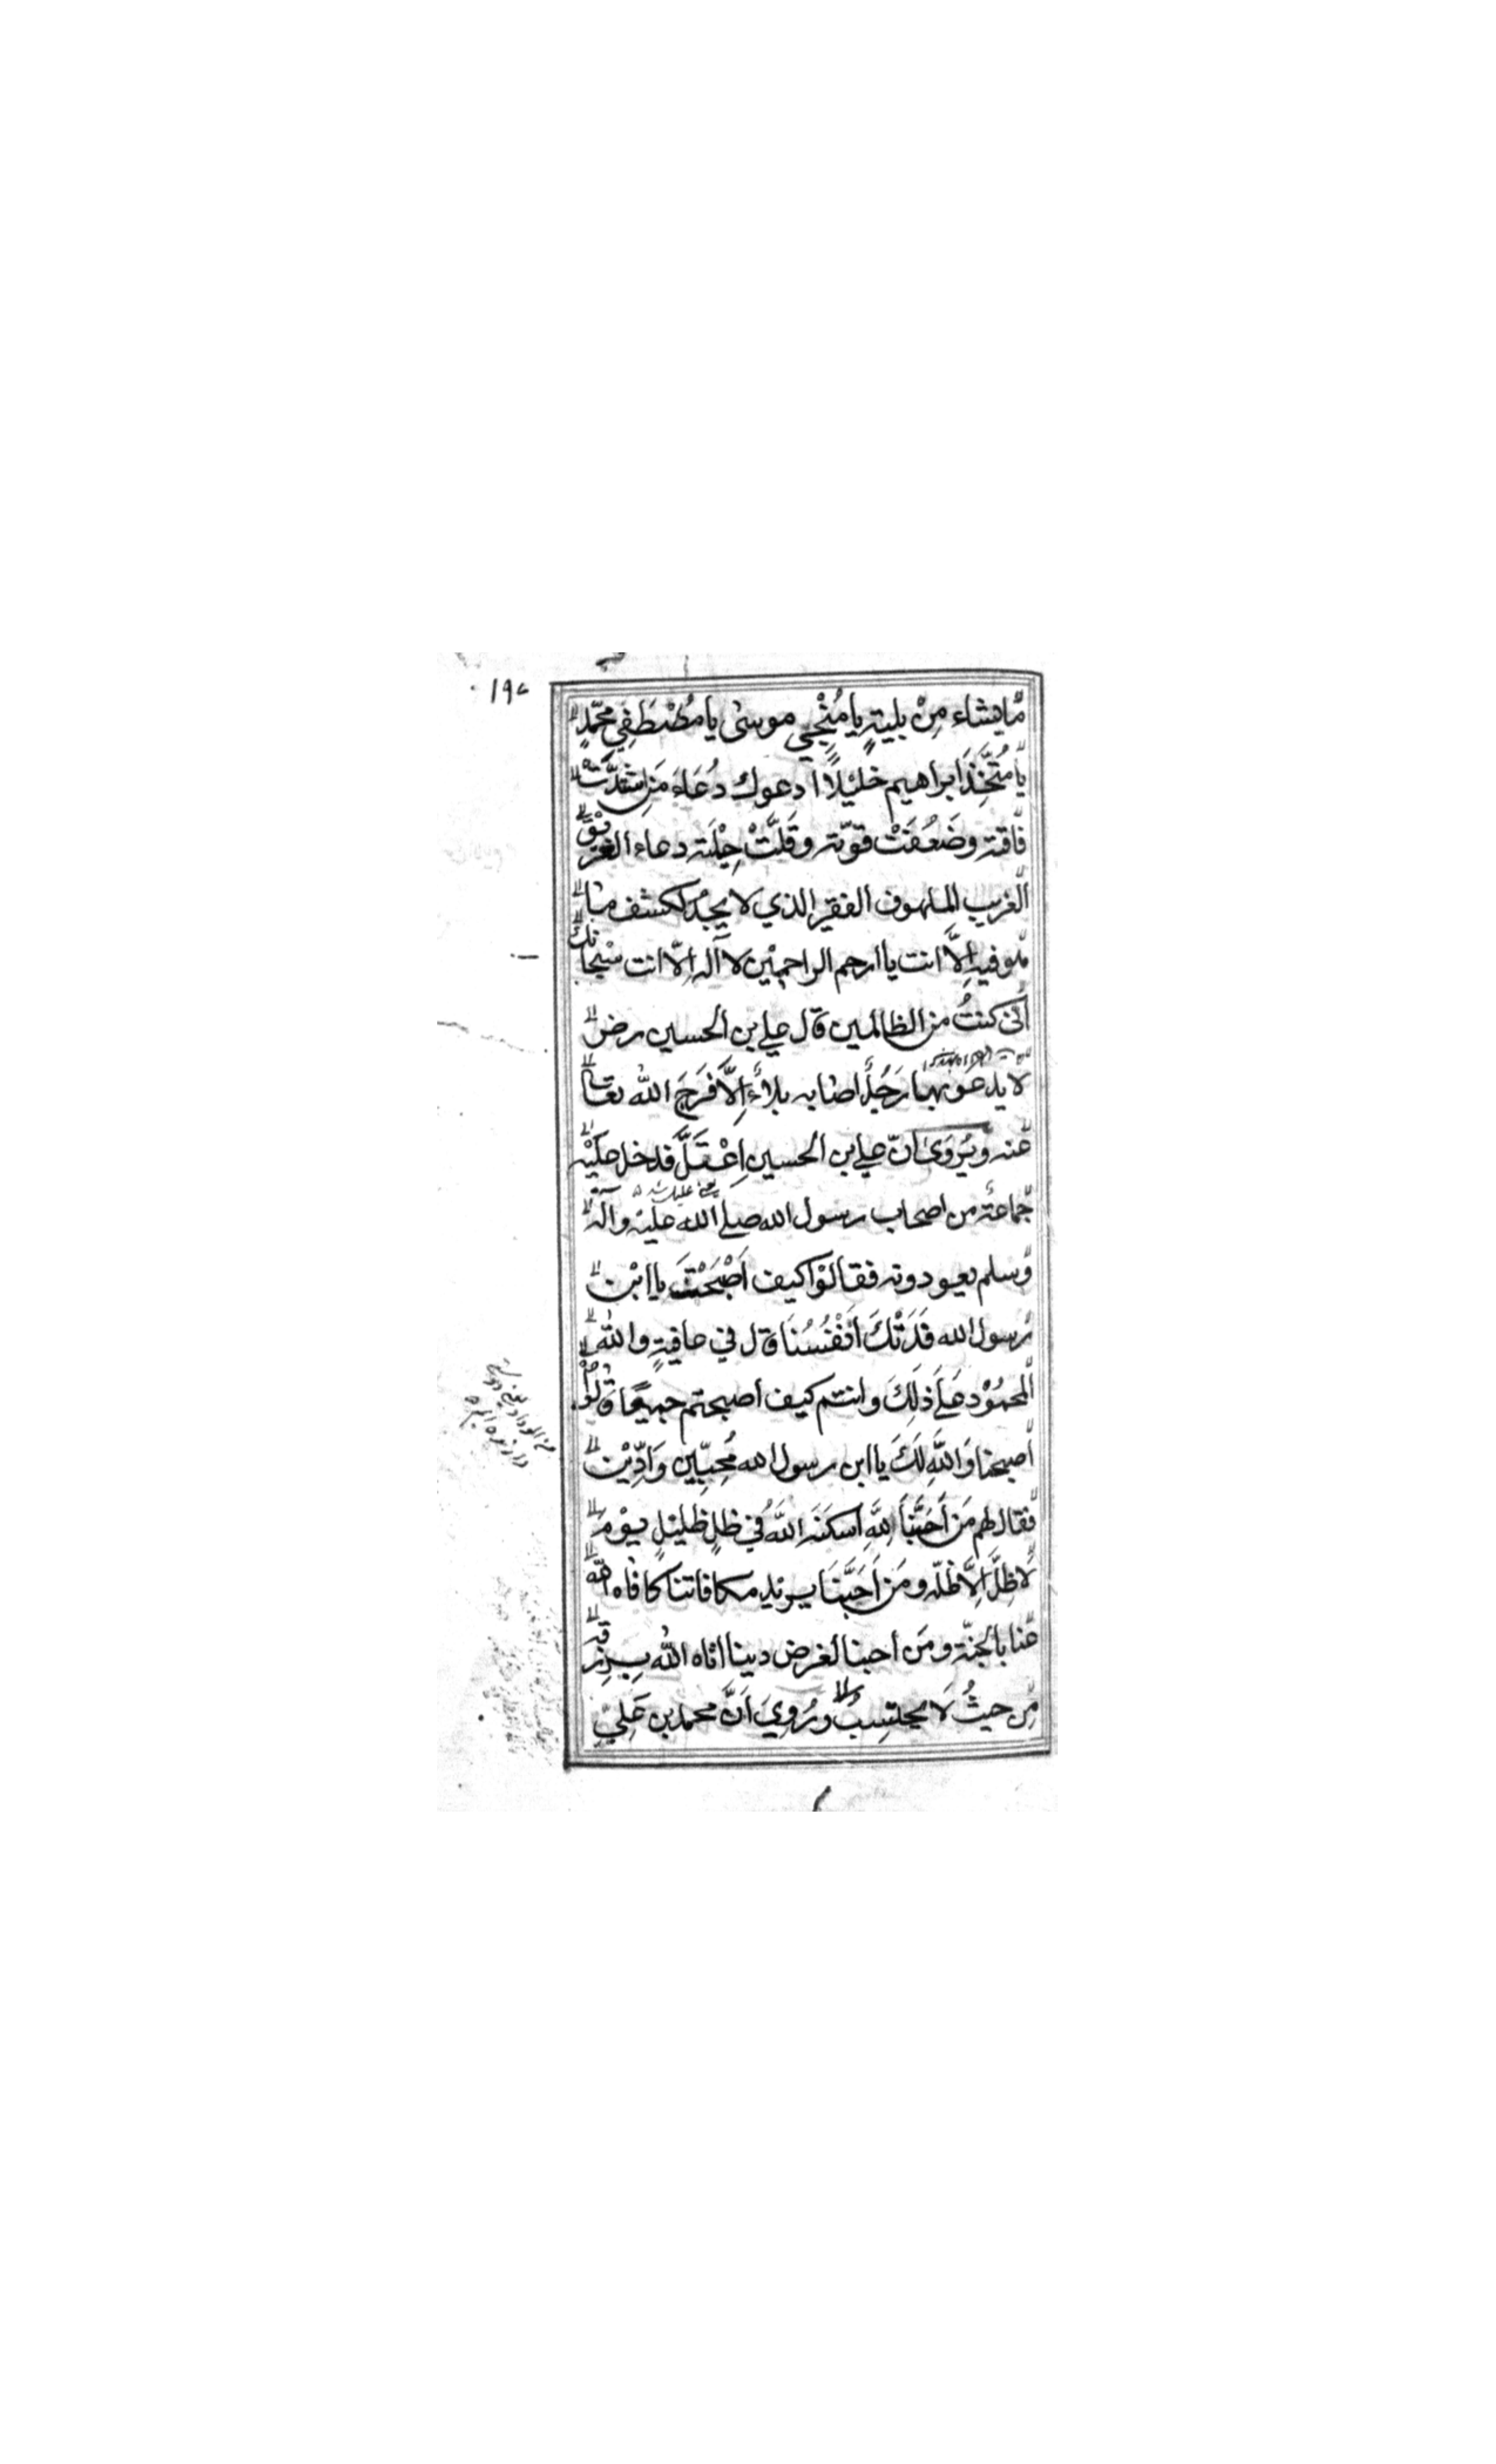 ١٩٤
ما يشاء مِنْ بليةٍ يا مُنْجِّي موسىٰ يا مُصْطَفِي محمّدٍ
يا مُتَّخِذَ ابراهيم خليلاً أدعوك دُعَاءَ مَنِ اشتدَّتْ
فاقته وضَعُفَتْ قوّته وقَلَّتْ حِيْلَته دعاء الغريْق
الغريب الملهوف الفقير الذي لا يجِدُ لكشف ما
هو فيه اِلَّا انت يا ارحم الراحمِيْن لا آله اِلّا انت سبحانك
انى كنتُ من الظالمين قال علي بن الحسين رض
لا يدعو بهَا رَجُلٌ اصابه بلاءٌ اِلَّا فَرَجَ الله تعالى
عنه ويُرْوَىٰ انّ علي بن الحسين اِعْتَلَّ فدخل عَلَيْه
جماعة من اصحاب رسول الله صلى الله عليْه وآله
وسلم يعودونه فقالوْا كيف اَصْبَحْتَ يا ابْن
رسول الله فَدَتْكَ اَنْفُسُنَا قال في عافيةٍ والله
المحمُوْد عَلَى ذلِكَ وانتم كيف أصبحتم جميعًا قالُوْا
أصبحنا وَاللهِ لَكَ يا ابن رسول الله مُحِبِّيِن وَادِّيْن
فقال لهم مَن اَحَبَّنَا لِلّهِ اَسكَنَه اللهُ في ظلٍ ظليلٍ يوْمَ
لَا ظِلَّ اِلَّا ظلّه ومَن اَحَبَّنَا يريد مكافاتنا كافاه الله
عنا بالجنّة ومَن أحبنا لغرض دنيا اتاه الله بِرِزقه
مِن حيثُ لَا يحتسِبُ ورُوِيَ اَنَّ محمد بن عَلِيّ